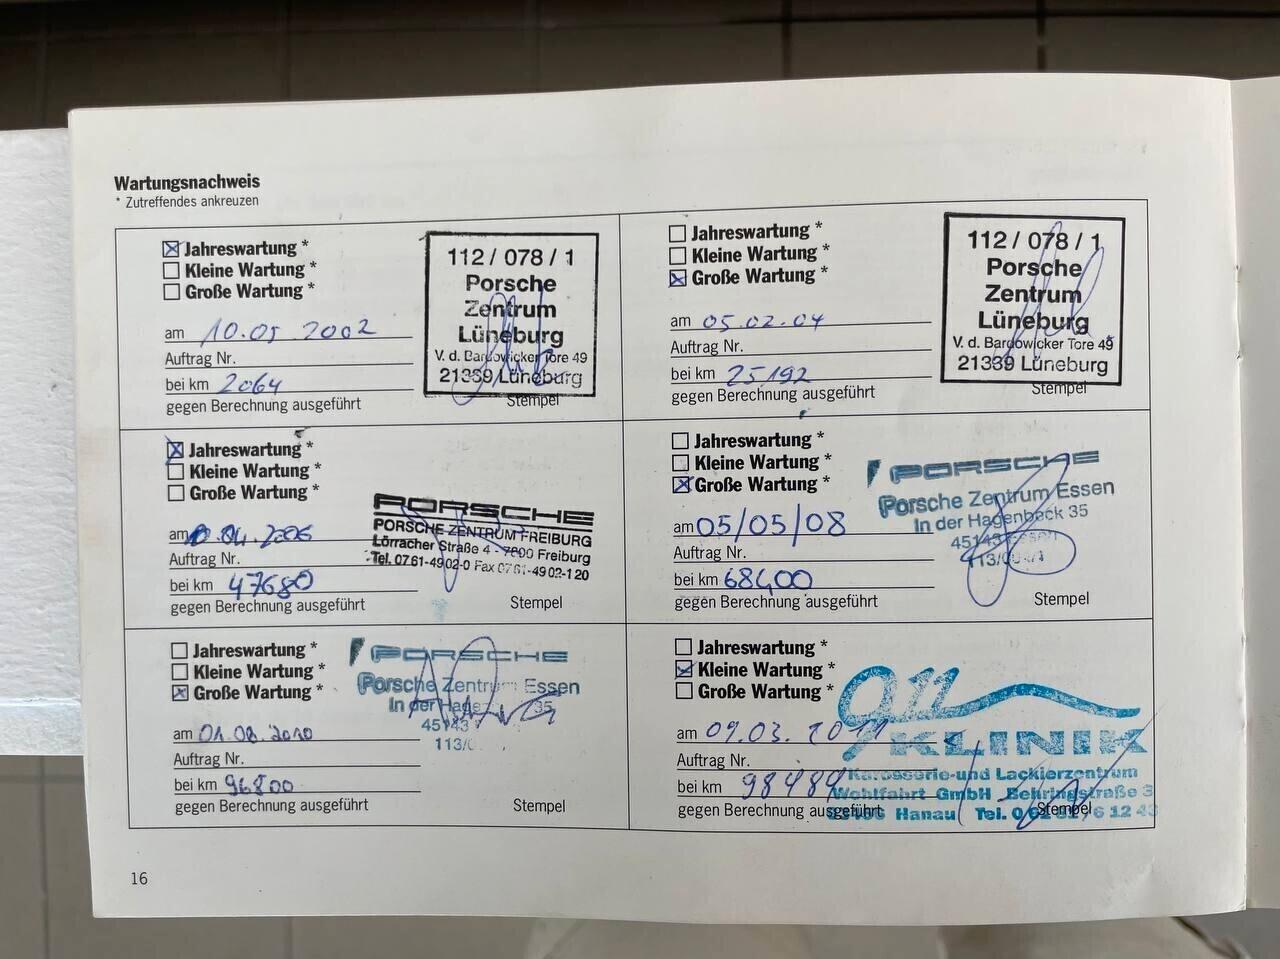 Wartungsnachweis
* Zutreffendes ankreuzen
Jahreswartung *
Kleine Wartung *
Große Wartung *
am 10.05.2002
Auftrag Nr.
bei km 2064
gegen Berechnung ausgeführt
112 / 078 / 1
Porsche
Zentrum
Lüneburg
V. d. Bardowicker Tore 49
21339 Lüneburg
Stempel
Jahreswartung *
Kleine Wartung *
Große Wartung *
am 05.02.04
Auftrag Nr.
bei km 25192
gegen Berechnung ausgeführt
112 / 078 / 1
Porsche
Zentrum
Lüneburg
V. d. Bardowicker Tore 49
21339 Lüneburg
Stempel
Jahreswartung *
Kleine Wartung *
Große Wartung *
am .04.2006
Auftrag Nr.
bei km 47680
gegen Berechnung ausgeführt
PORSCHE
PORSCHE ZENTRUM FREIBURG
Lörracher Straße 4 - 7800 Freiburg
Tel. 0761-4902-0 Fax 0761-4902-120
Stempel
Jahreswartung *
Kleine Wartung *
Große Wartung *
am 05/05/08
Auftrag Nr.
bei km 68400
gegen Berechnung ausgeführt
PORSCHE
Porsche Zentrum Essen
In der Hagenbeck 35
45143 Essen
Stempel
Jahreswartung *
Kleine Wartung *
Große Wartung *
am 01.08.2010
Auftrag Nr.
bei km 96800
gegen Berechnung ausgeführt
PORSCHE
Porsche Zentrum Essen
In der 35
45143
113/
Stempel
Jahreswartung *
Kleine Wartung *
Große Wartung *
am 09.03.2011
Auftrag Nr.
bei km 98484
gegen Berechnung ausgeführt
911
KLINIK
Karosserie-und Lackierzentrum
Wohlfahrt GmbH Behringstraße 3
Hanau Tel.
Stempel
16